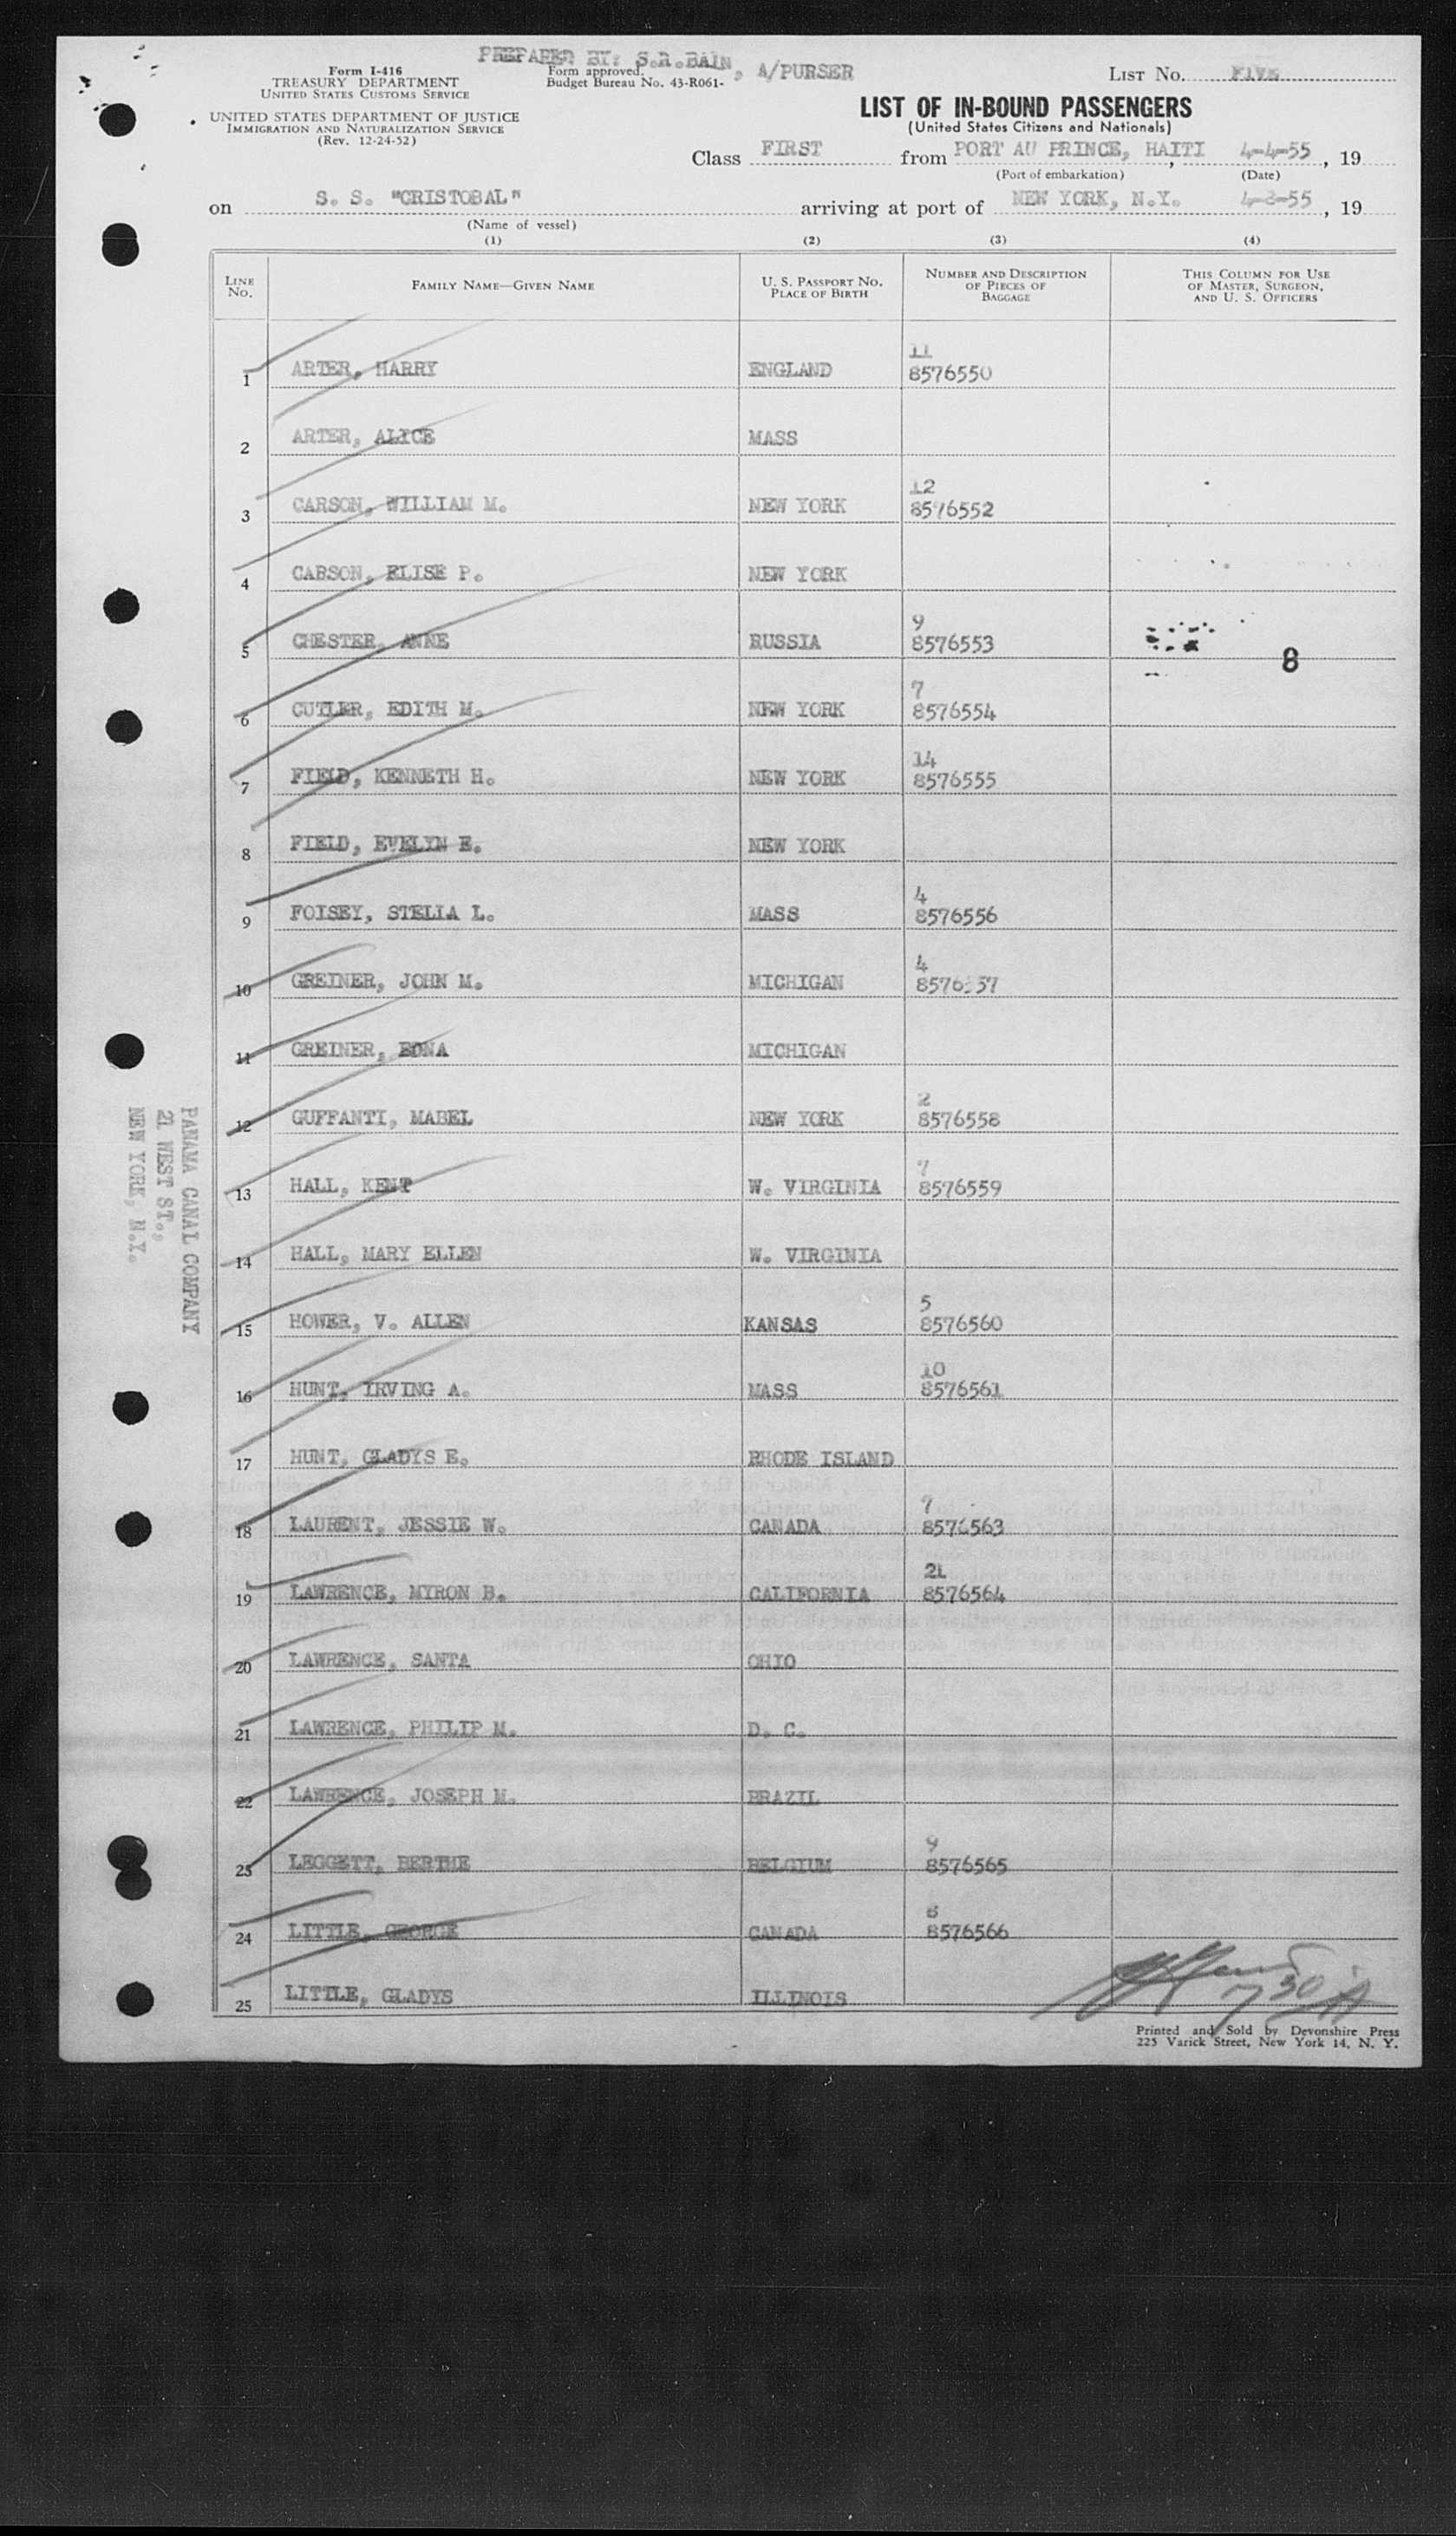 PREPARED BY: S.R.BAIN, A/PURSER
Form I-416
TREASURY DEPARTMENT
UNITED STATES CUSTOMS SERVICE
UNITED STATES DEPARTMENT OF JUSTICE
IMMIGRATION AND NATURALIZATION SERVICE
(Rev. 12-24-52)
Form approved.
Budget Bureau No. 43-R061-
LIST No. FIVE
LIST OF IN-BOUND PASSENGERS
(United States Citizens and Nationals)
Class FIRST from PORT AU PRINCE, HAITI, 4-4-55, 19
(Port of embarkation) (Date)
on S. S. "CRISTOBAL" arriving at port of NEW YORK, N.Y. 4-8-55, 19
(Name of vessel)
(1) (2) (3) (4)
LINE No. FAMILY NAME—GIVEN NAME U. S. PASSPORT No. PLACE OF BIRTH NUMBER AND DESCRIPTION OF PIECES OF BAGGAGE THIS COLUMN FOR USE OF MASTER, SURGEON, AND U. S. OFFICERS
11
1 ARTER, HARRY ENGLAND 8576550
2 ARTER, ALICE MASS
12
3 CARSON, WILLIAM M. NEW YORK 8576552
4 CARSON, ELISE P. NEW YORK
9
5 CHESTER, ANNE RUSSIA 8576553
8
7
6 CUTLER, EDITH M. NEW YORK 8576554
14
7 FIELD, KENNETH H. NEW YORK 8576555
8 FIELD, EVELYN E. NEW YORK
4
9 FOISEY, STELLA L. MASS 8576556
4
10 GREINER, JOHN M. MICHIGAN 8576557
11 GREINER, EDNA MICHIGAN
2
12 GUFFANTI, MABEL NEW YORK 8576558
7
13 HALL, KENT W. VIRGINIA 8576559
14 HALL, MARY ELLEN W. VIRGINIA
5
15 HOWER, V. ALLEN KANSAS 8576560
10
16 HUNT, IRVING A. MASS 8576561
17 HUNT, GLADYS E. RHODE ISLAND
7
18 LAURENT, JESSIE W. CANADA 8576563
21
19 LAWRENCE, MYRON B. CALIFORNIA 8576564
20 LAWRENCE, SANTA OHIO
21 LAWRENCE, PHILIP M. D. C.
22 LAWRENCE, JOSEPH M. BRAZIL
9
23 LEGGETT, BERTHE BELGIUM 8576565
24 LITTLE, GEORGE CANADA 8576566
25 LITTLE, GLADYS ILLINOIS
730 A
Printed and Sold by Devonshire Press
225 Varick Street, New York 14, N. Y.
PANAMA CANAL COMPANY
21 WEST ST.,
NEW YORK, N.Y.